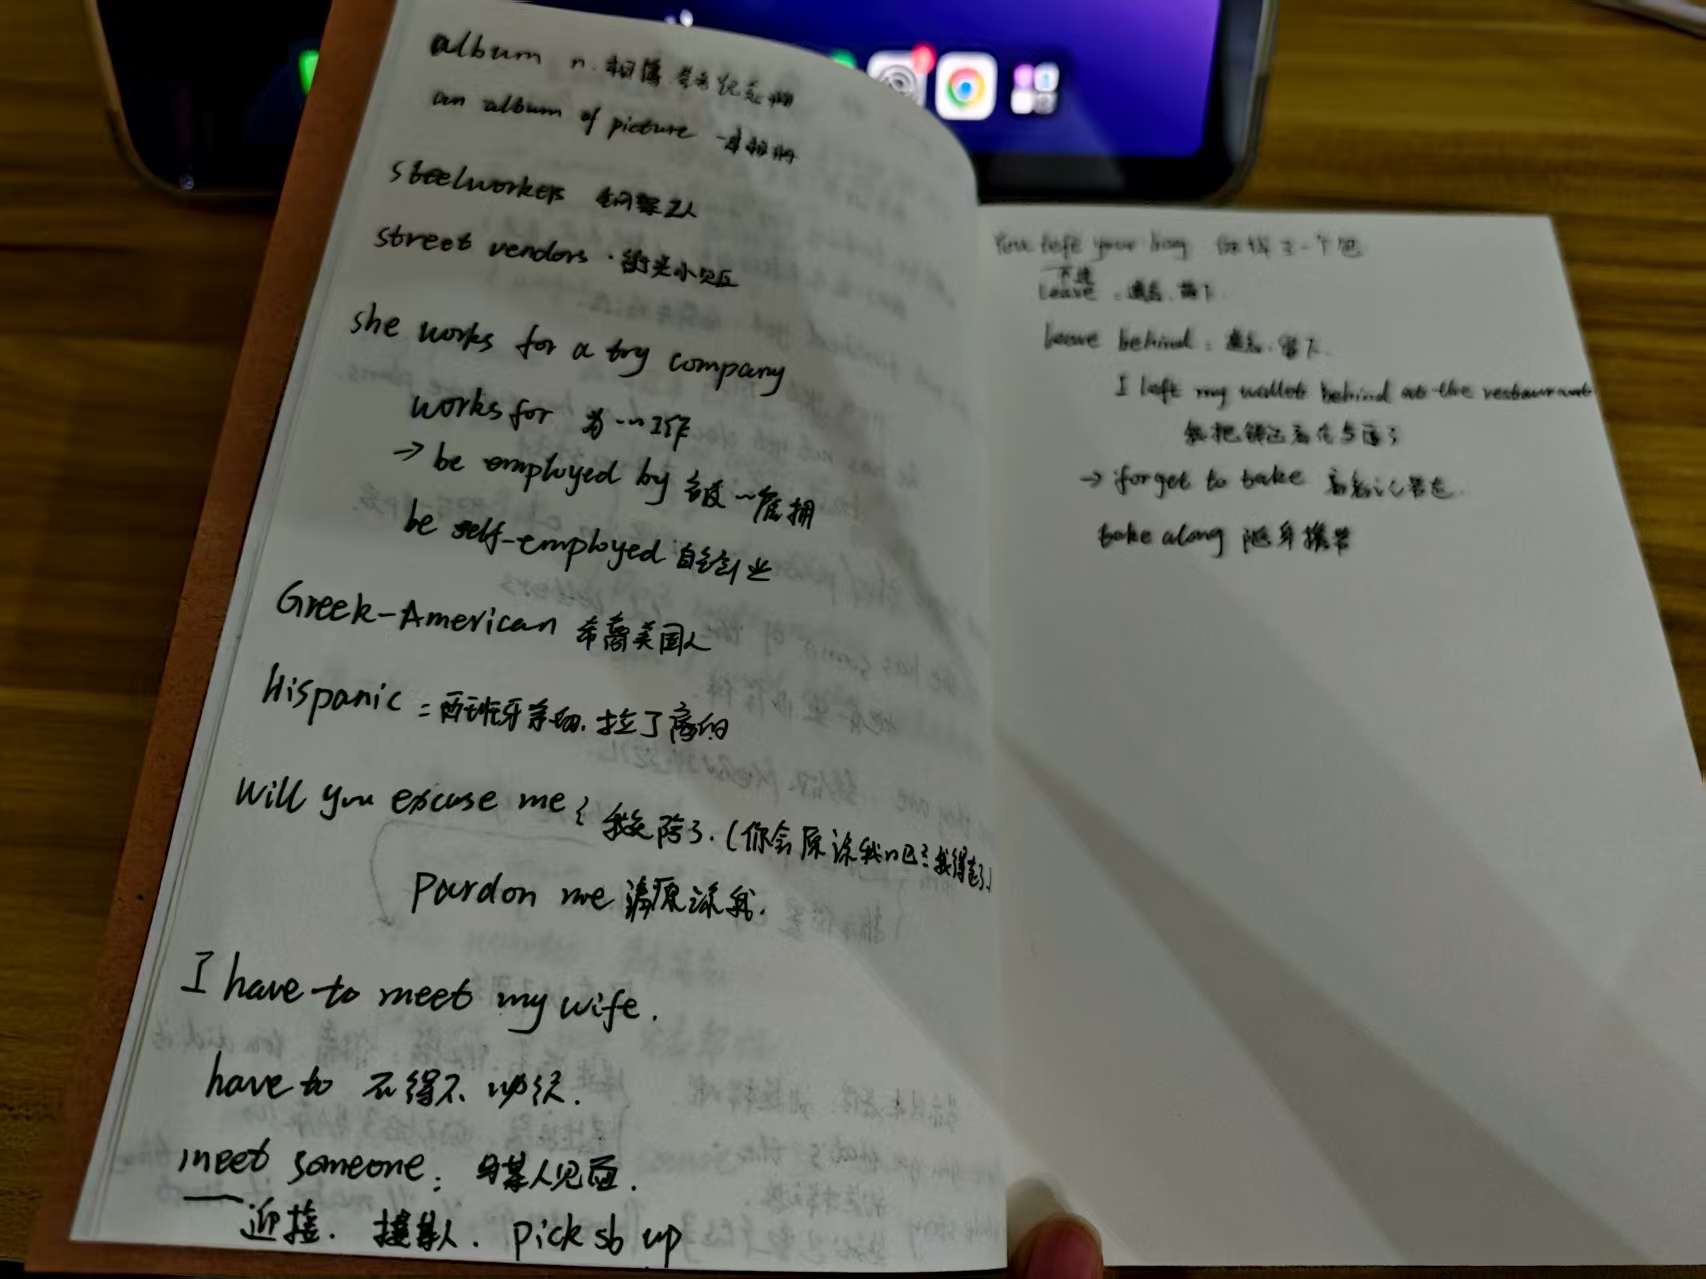 album n. 相簿.
an album of picture 一本相册
steelworkers 钢架工人
street vendors · 街头小贩
she works for a toy company
works for 为…工作
→ be employed by 被…雇拥
be self-employed 自主创业
Greek-American 希裔美国人
Hispanic = 西班牙系的. 拉丁裔的
Will you excuse me 我先陪了. (你会原谅我吧 = 我得走了.)
Pardon me 请原谅我.
I have to meet my wife.
have to 不得不 必须.
meet someone: 与某人见面.
迎接. 接某人. pick sb up
You left your bag 你 了一个包
下述
leave : 遗忘. 留下
leave behind : 遗忘. 留下.
I left my wallet behind at the restaurant
我把钱包
→ forget to take
take along 随身携带